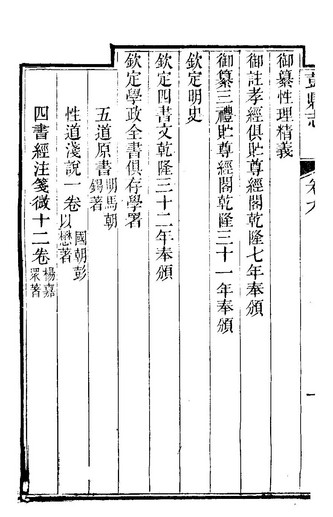 彭縣志
卷九
一
御纂性理精義
御註孝經俱貯尊經閣乾隆七年奉頒
御纂三禮貯尊經閣乾隆三十一年奉頒
欽定明史
欽定四書文乾隆三十二年奉頒
欽定學政全書俱存學署
五道原書明馬朝錫著
性道淺說一卷國朝彭以懋著
四書經注箋微十二卷楊嘉